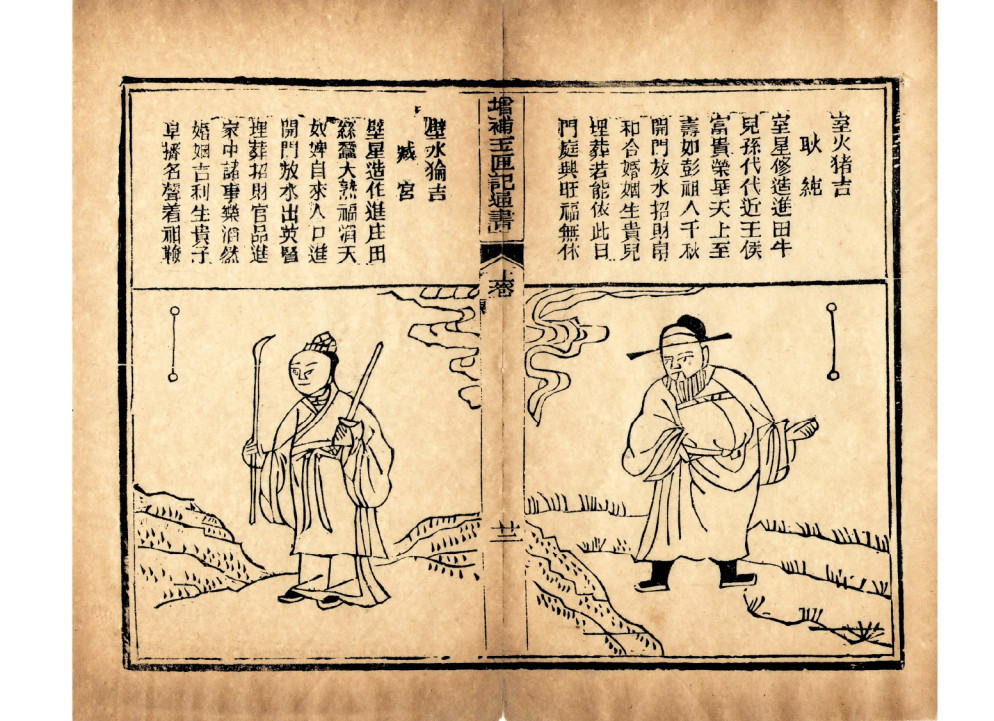 室火猪吉
耿純
室星修造進田牛
兒孫代代近王侯
富貴榮華天上至
壽如彭祖八千秋
開門放水招財帛
和合婚姻生貴兒
埋葬若能依此日
門庭興旺福無休
增補玉匣記通書
上卷
廿三
壁水㺄吉
臧宮
壁星造作進庄田
絲蠶大熟福滔天
奴婢自來人口進
開門放水出英賢
埋葬招財官品進
家中諸事樂滔然
婚姻吉利生貴子
早播名聲着祖鞭